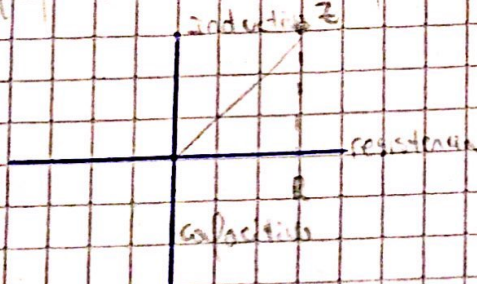 inductivo Z
resistencia
R
capacitivo